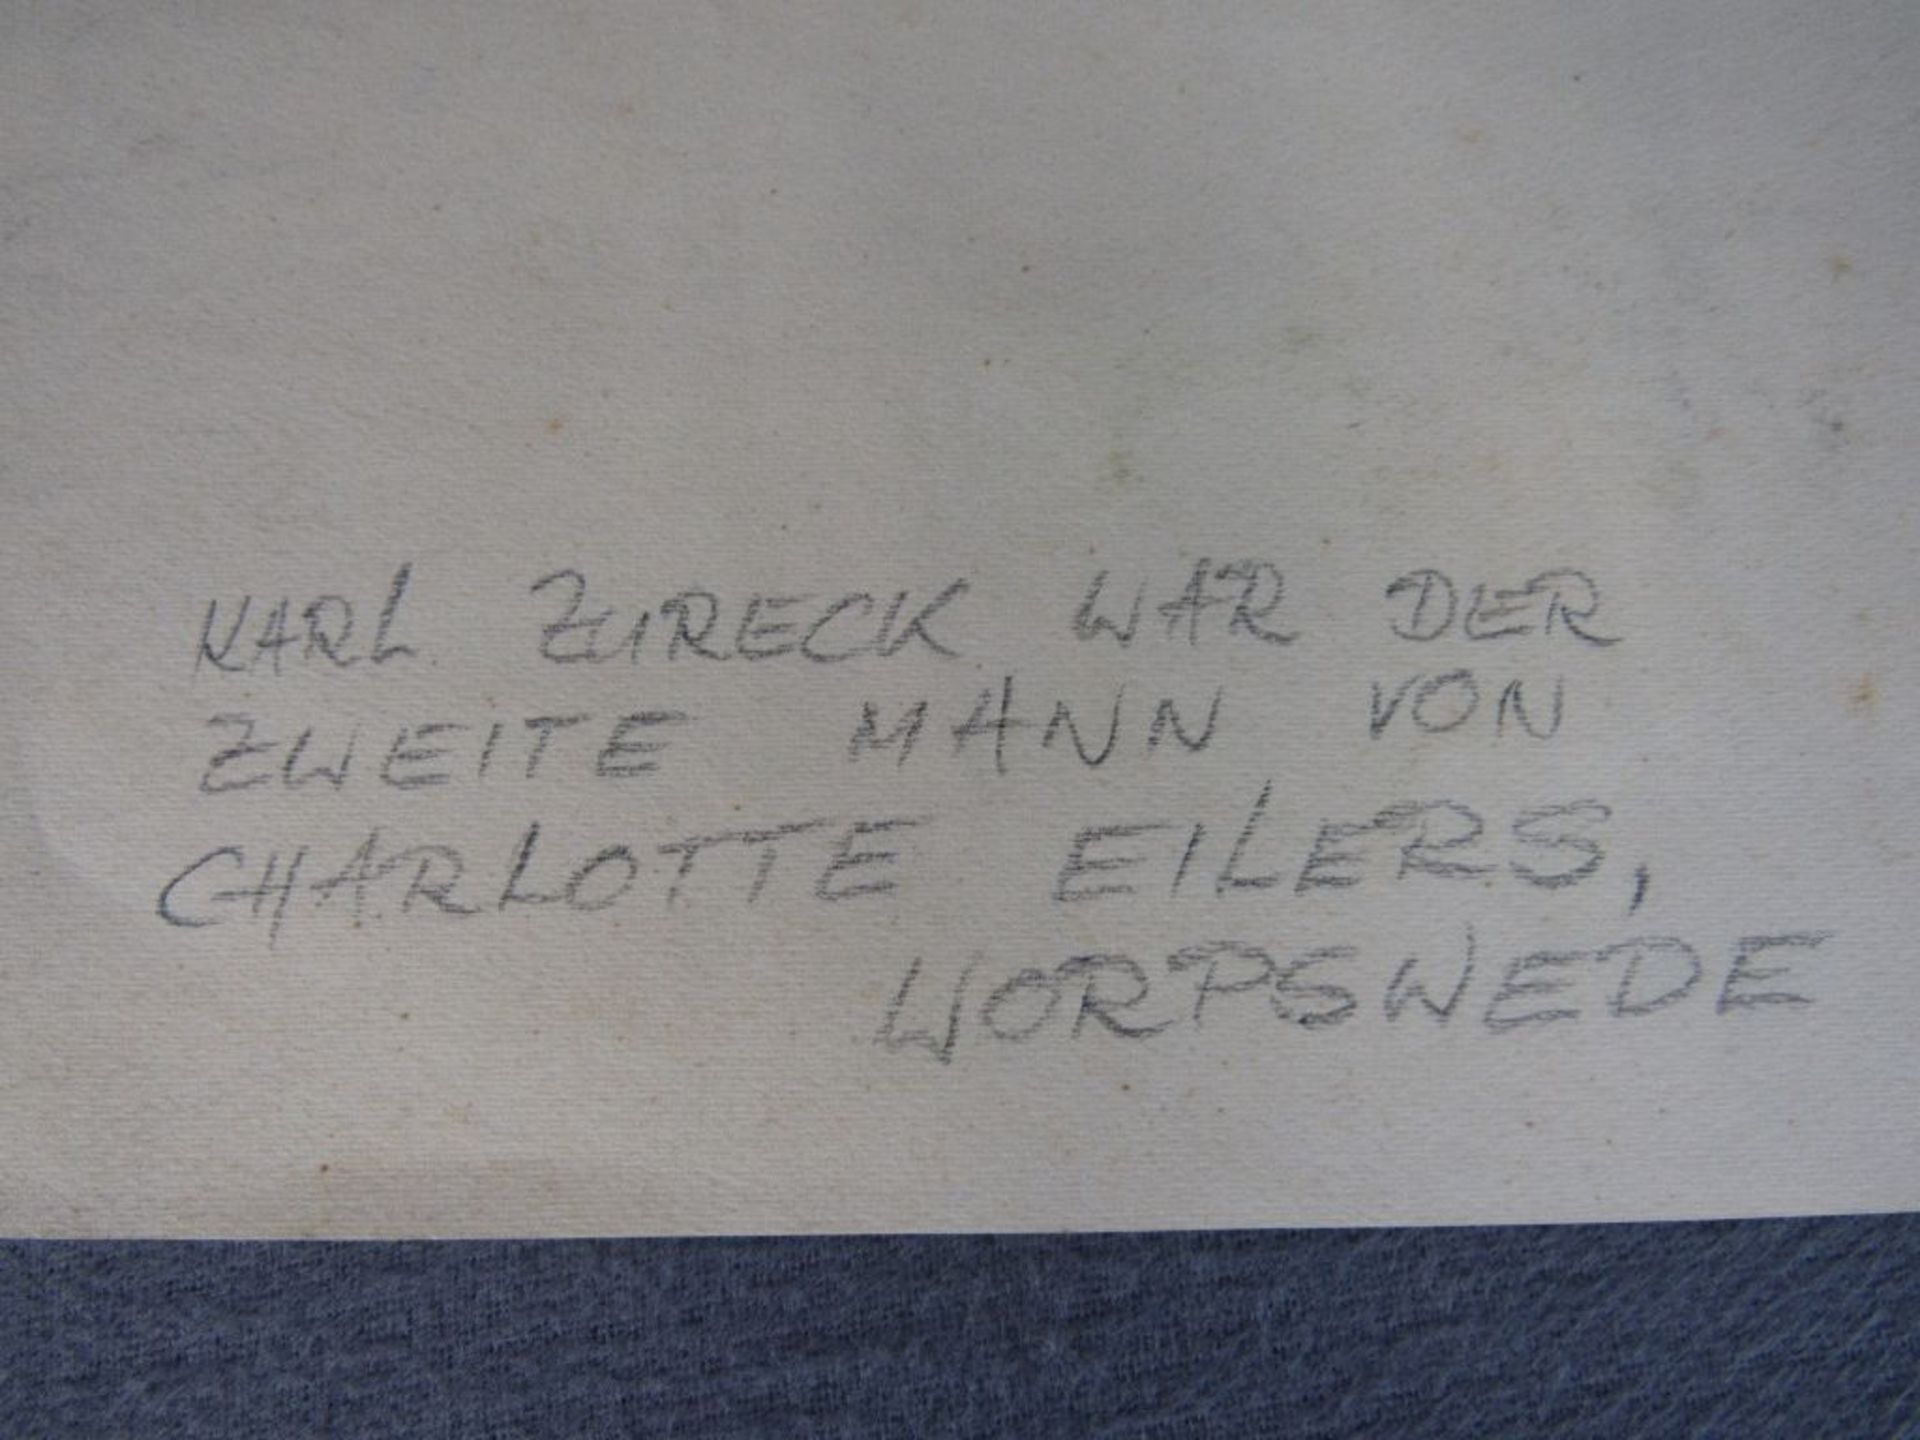 KARL ZURECK WAR DER
ZWEITE MANN VON
CHARLOTTE EILERS,
WORPSWEDE